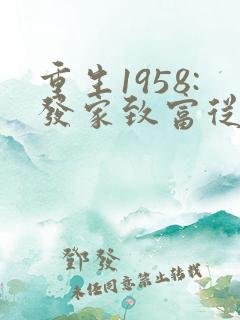 重生1958:
發家致富從
鄧發
未經同意禁止轉載